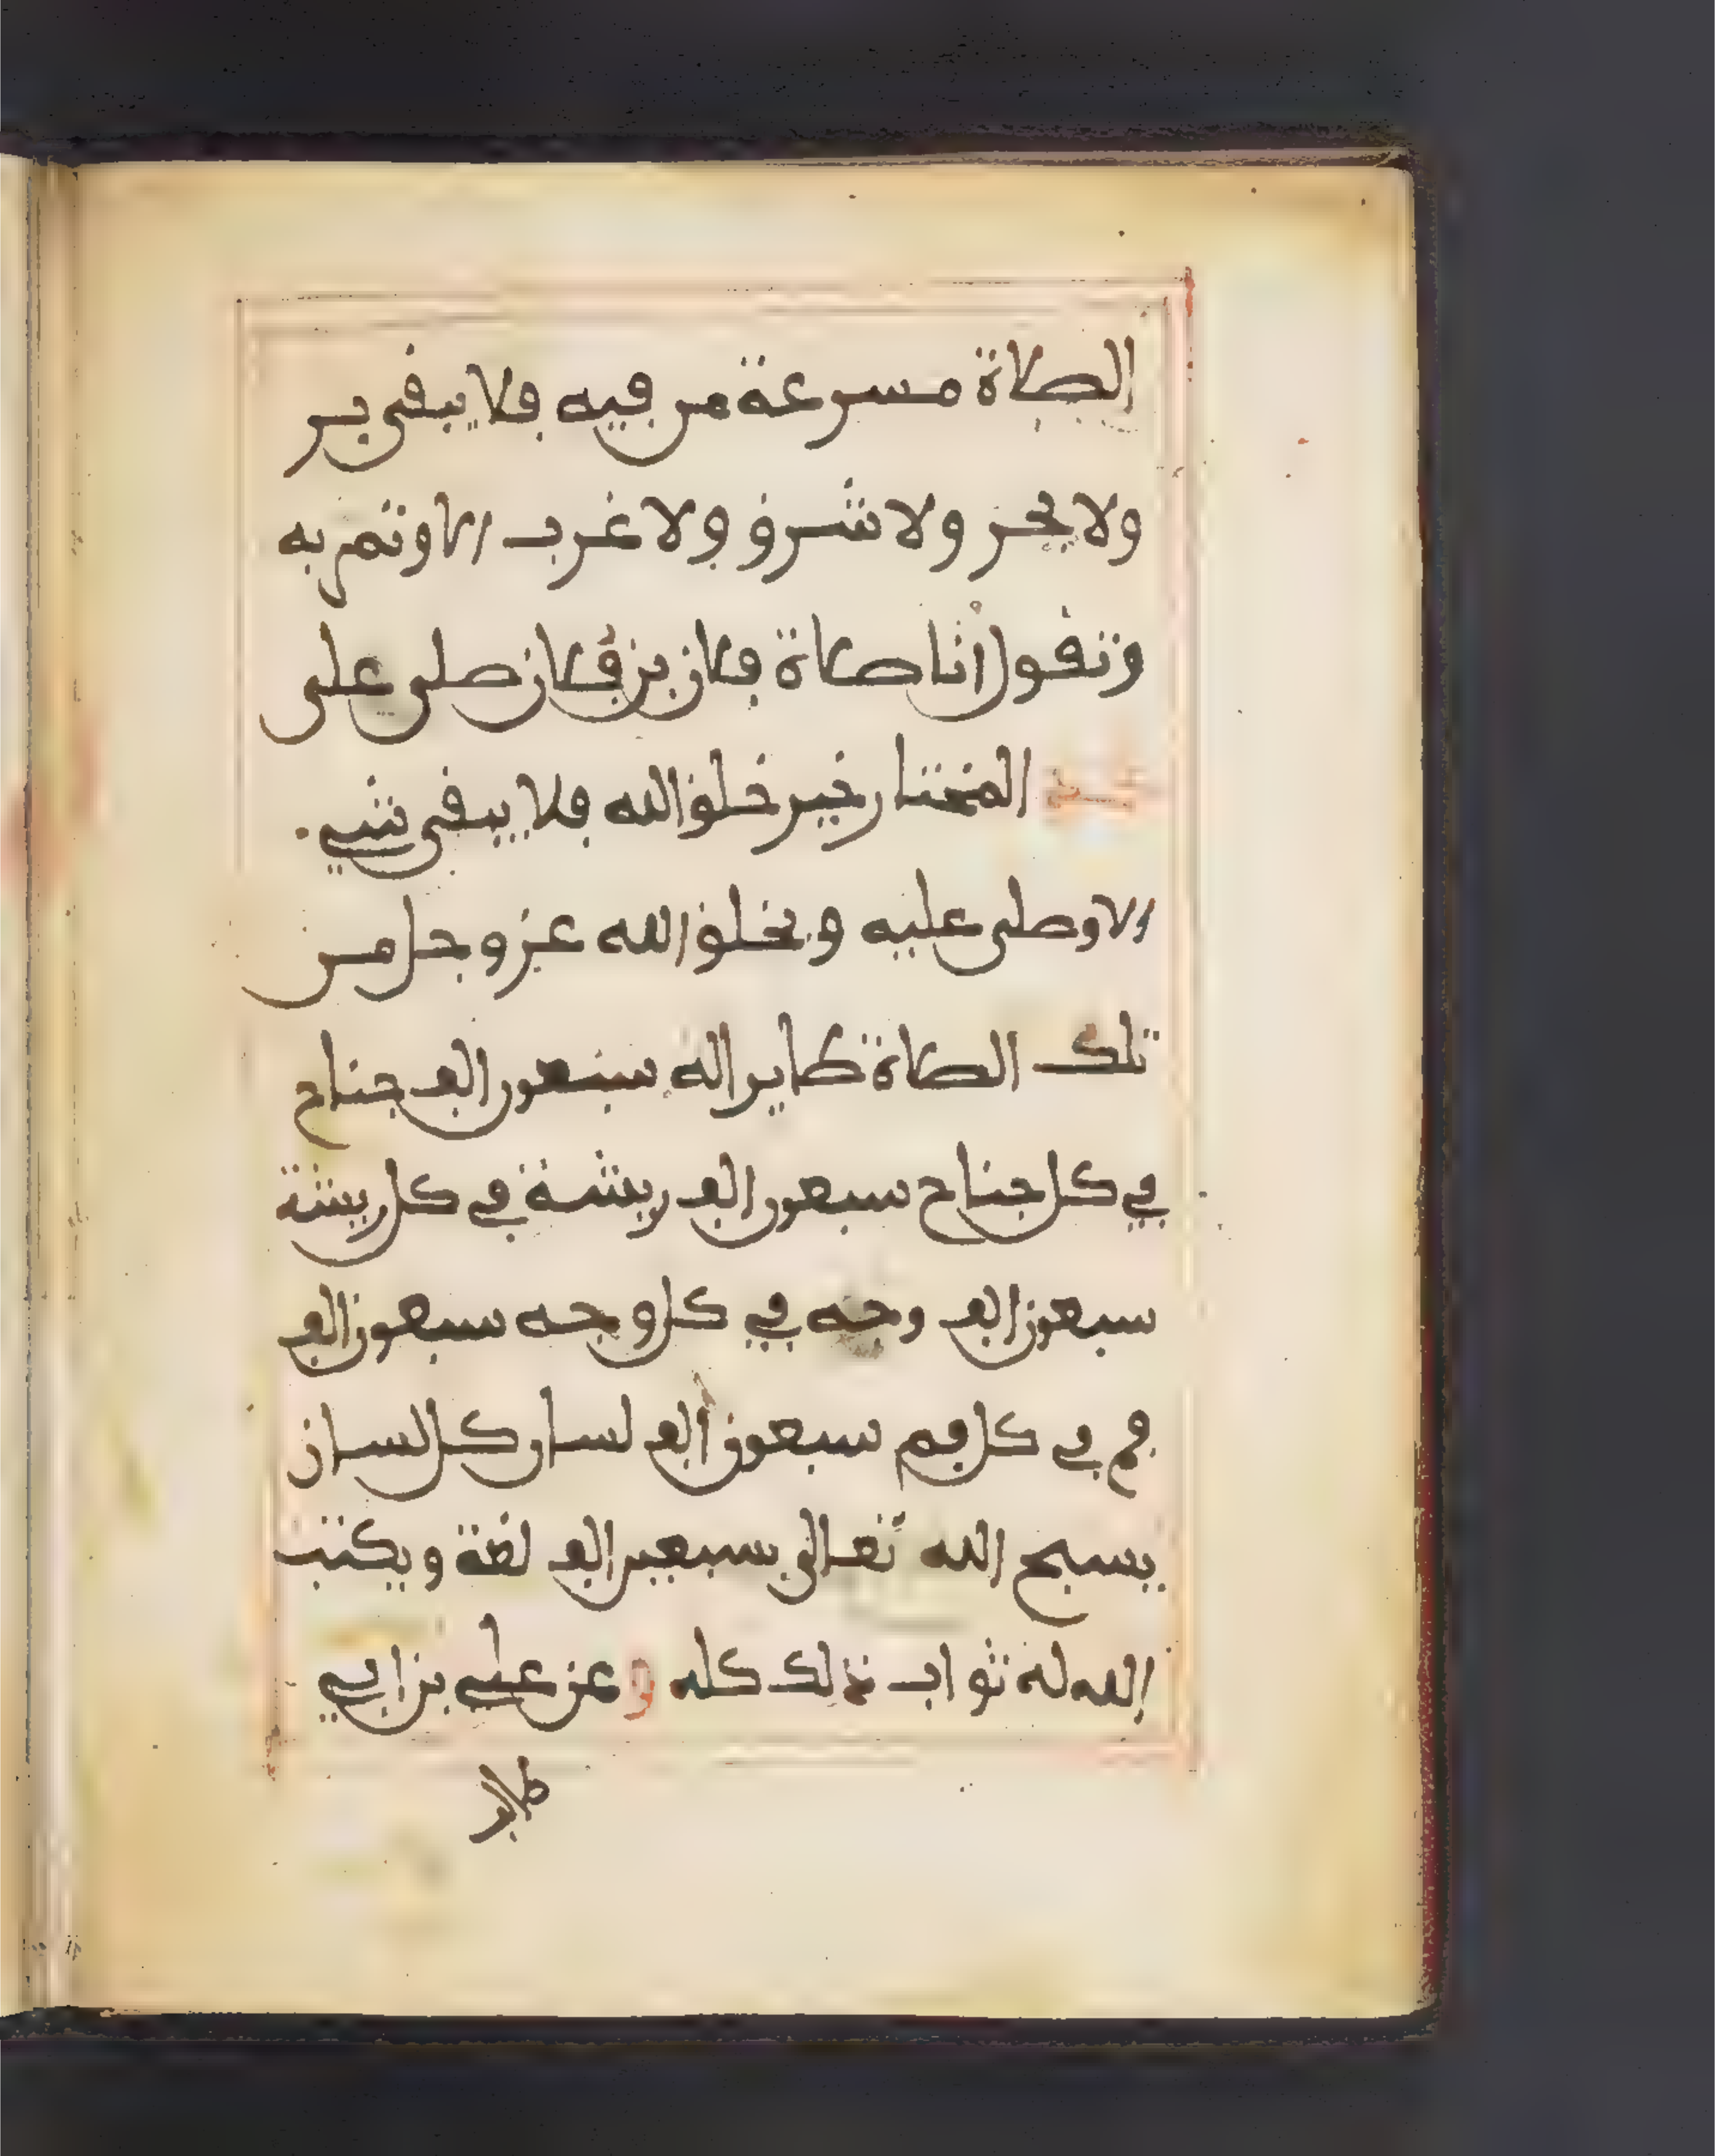 الصلاة مسرعة من فيه فلا يبقى بر
ولا بحر ولا شرق ولا غرب الا وتمر به
وتقول أنا صلاة فلان بن فلان صلى على
محمد المختار خير خلق الله فلا يبقى شيء
الا وصلى عليه ويخلق الله عز وجل من
تلك الصلاة طايرا له سبعون الف جناح
في كل جناح سبعون الف ريشة في كل ريشة
سبعون الف وجه في كل وجه سبعون الف
فم في كل فم سبعون ألف لسان كل لسان
يسبح الله تعالى بسبعين الف لغة ويكتب
الله له ثواب ذلك كله وعن علي بن ابي
طالب